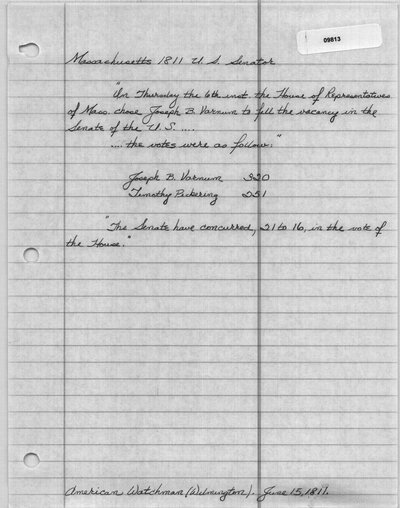 09813
Massachusetts 1811 U.S. Senator
"On Thursday the 6th inst. the House of Representatives
of Mass. chose Joseph B. Varnum to fill the vacancy in the
Senate of the U.S. ....
.... the votes were as follow:"
Joseph B. Varnum 320
Timothy Pickering 251
"The Senate have concurred, 21 to 16, in the vote of
the House."
American Watchman (Wilmington). June 15, 1811.